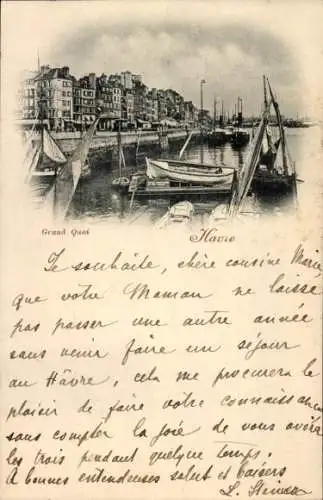 Grand Quai
Havre
Je souhaite, chère cousine Marie
que votre Maman ne laisse
pas passer une autre année
sans venir faire un séjour
au Hâvre, cela me procurera le
plaisir de faire votre connaissance
sans compter la joie de vous avoir
les trois pendant quelque temps.
A bonnes entendeuses salut et baisers
L.